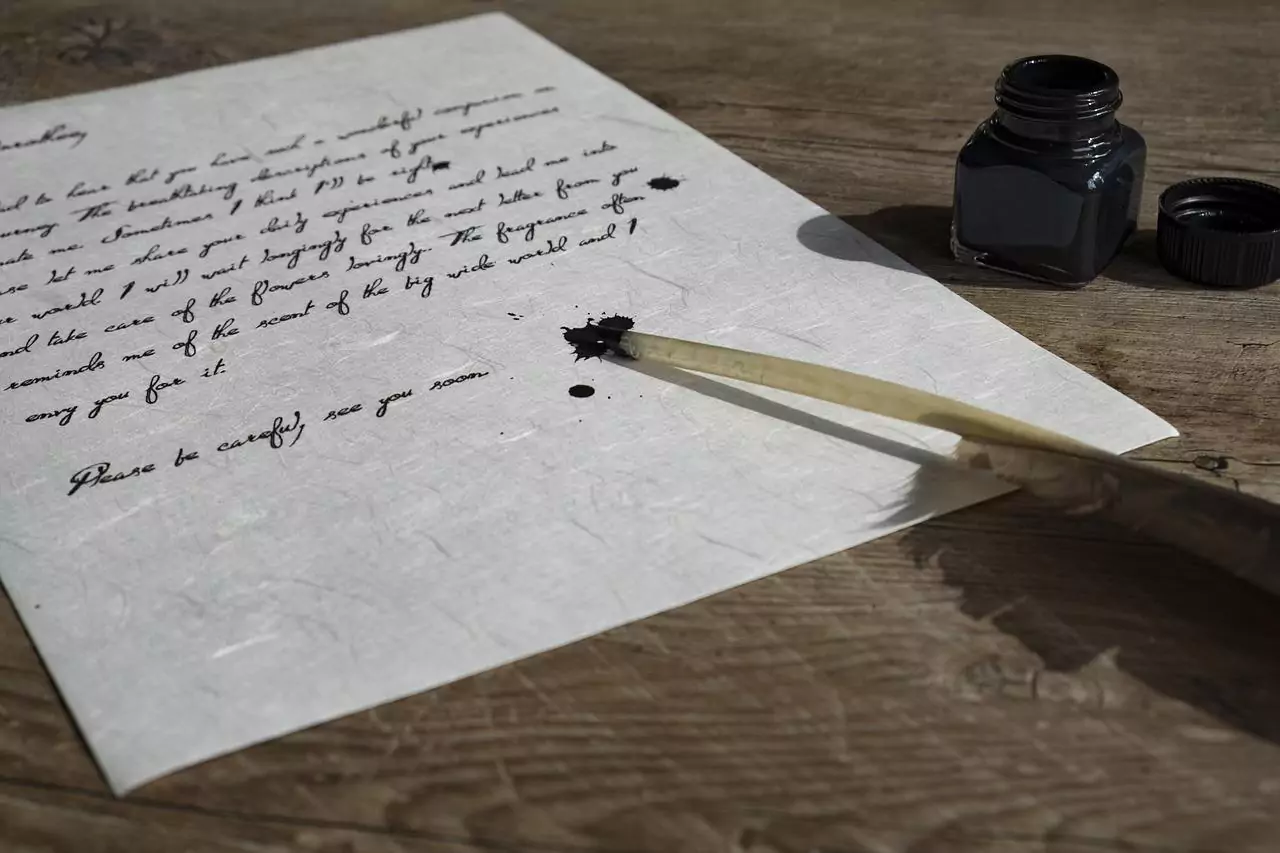 to hear that you have such a wonderful companion on
urney. The breathtaking descriptions of your experiences
nate me. Sometimes I think I'll be right
ase let me share your daily experiences and lead me into
ur world I will wait longingly for the next letter from you
nd take care of the flowers lovingly. The fragrance often
reminds me of the scent of the big wide world and I
envy you for it.
Please be careful, see you soon